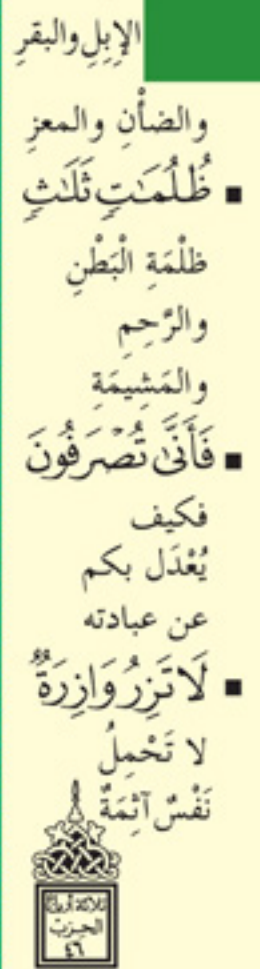 الإِبِلِ والبقرِ
والضأْنِ والمعزِ
▪ ظُلُمَـٰتٍ ثَلَـٰثٍ
ظلْمَةِ الْبَطْنِ
والرَّحِمِ
والمَشِيمَةِ
▪ فَأَنَّىٰ تُصْرَفُونَ
فكيف
يُعْدَل بكم
عن عبادته
▪ لَا تَزِرُ وَازِرَةٌ
لا تَحْمِلُ
نَفْسٌ آثِمَةٌ
ثلاثة أرباع
الحزب
٤٦